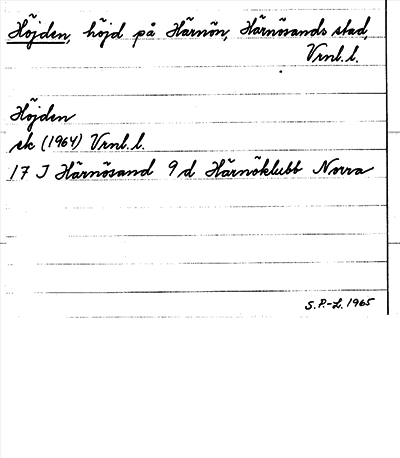 Höjden, höjd på Härnön, Härnösands stad,
Vrnl.l.
Höjden
ek (1964) Vrnl.l.
17 J Härnösand 9 d Härnöklubb Norra
S.P.-L. 1965